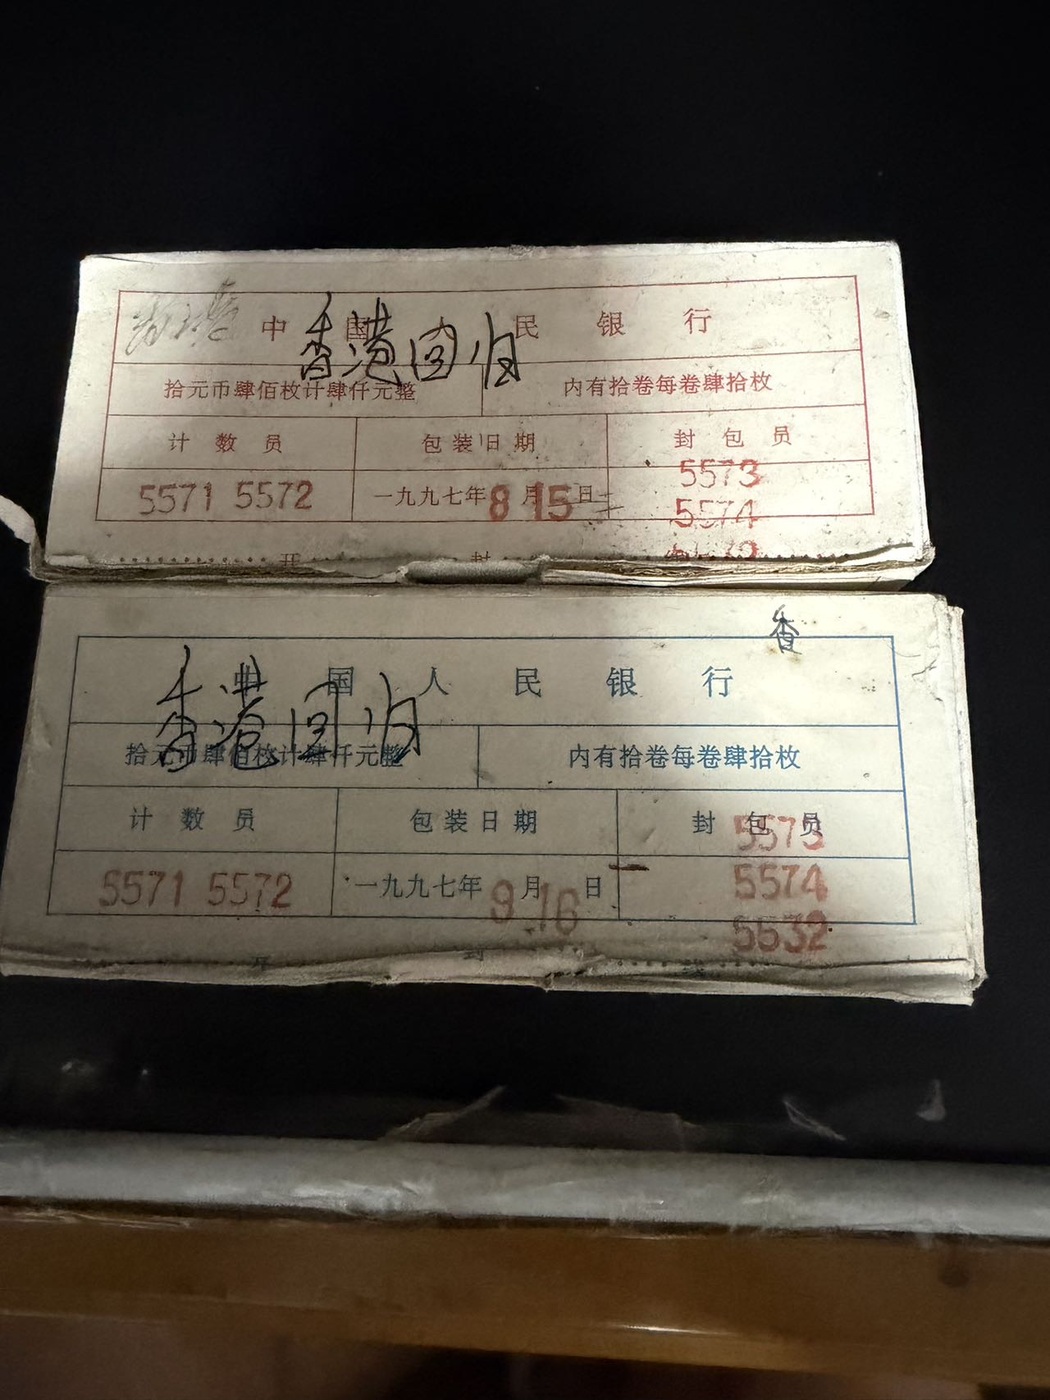 中国 民银行
香港回归
拾元币肆佰枚计肆仟元整 内有拾卷每卷肆拾枚
计数员 包装日期 封包员
5573
5571 5572 一九九七年8月15日
5574
开 封
香
中国人民银行
香港回归
拾元币肆佰枚计肆仟元整 内有拾卷每卷肆拾枚
计数员 包装日期 封包员
5573
5571 5572 一九九七年9月16日 5574
5632